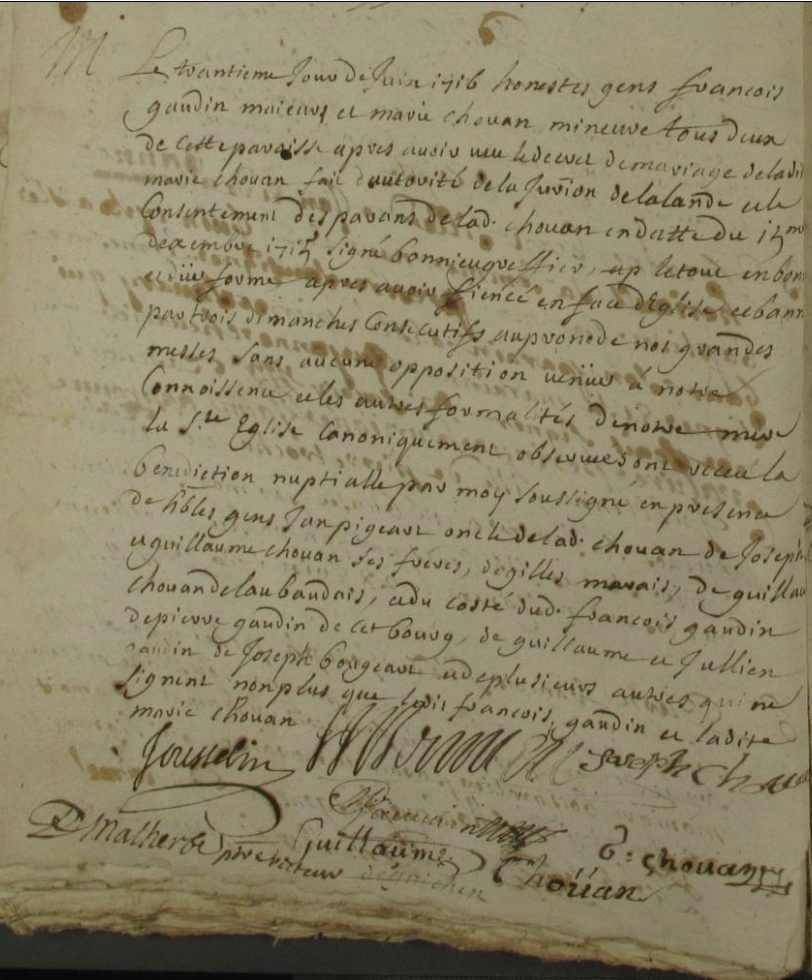 M Le trantieme Jour de Juin 1716 honestes gens francois
gaudin maieurs et marie chouan mineure tous deux
de cette paroisse apres avoir veu le decret de mariage de ladi
marie chouan fait d'autorité de la Jurion de lalande et le
Consentement des parans de lad. chouan en datte du 15me
decembre 1715 signé bonnieu greffier, ap le tout en bon
et düe forme apres avoir fiencé en face d'Eglise et bann
par trois dimanches Consecutifs au prone de nos grandes
messes sans aucune opposition venüe à notre
Connoissence et les autres formalités de notre mere
la Ste Eglise Canoniquement observées ont receu la
benediction nuptialle par moy soussigné en presence
de hbles gens Jan pigeart oncle de lad. chouan de Joseph
et guillaume chouan ses freres, de gilles marais, de guillau
chouan de laubaudais, et du costé dud. francois gaudin
de pierre gaudin de cet bourg, de guillaume et Jullien
gaudin de Joseph bougeart et de plusieurs autres qui ne
signent non plus que ledit francois gaudin et ladite
marie chouan
Jousselin Joseph Chou
Guillaume G: chouan
D Malherbe ptre recteur Choüan